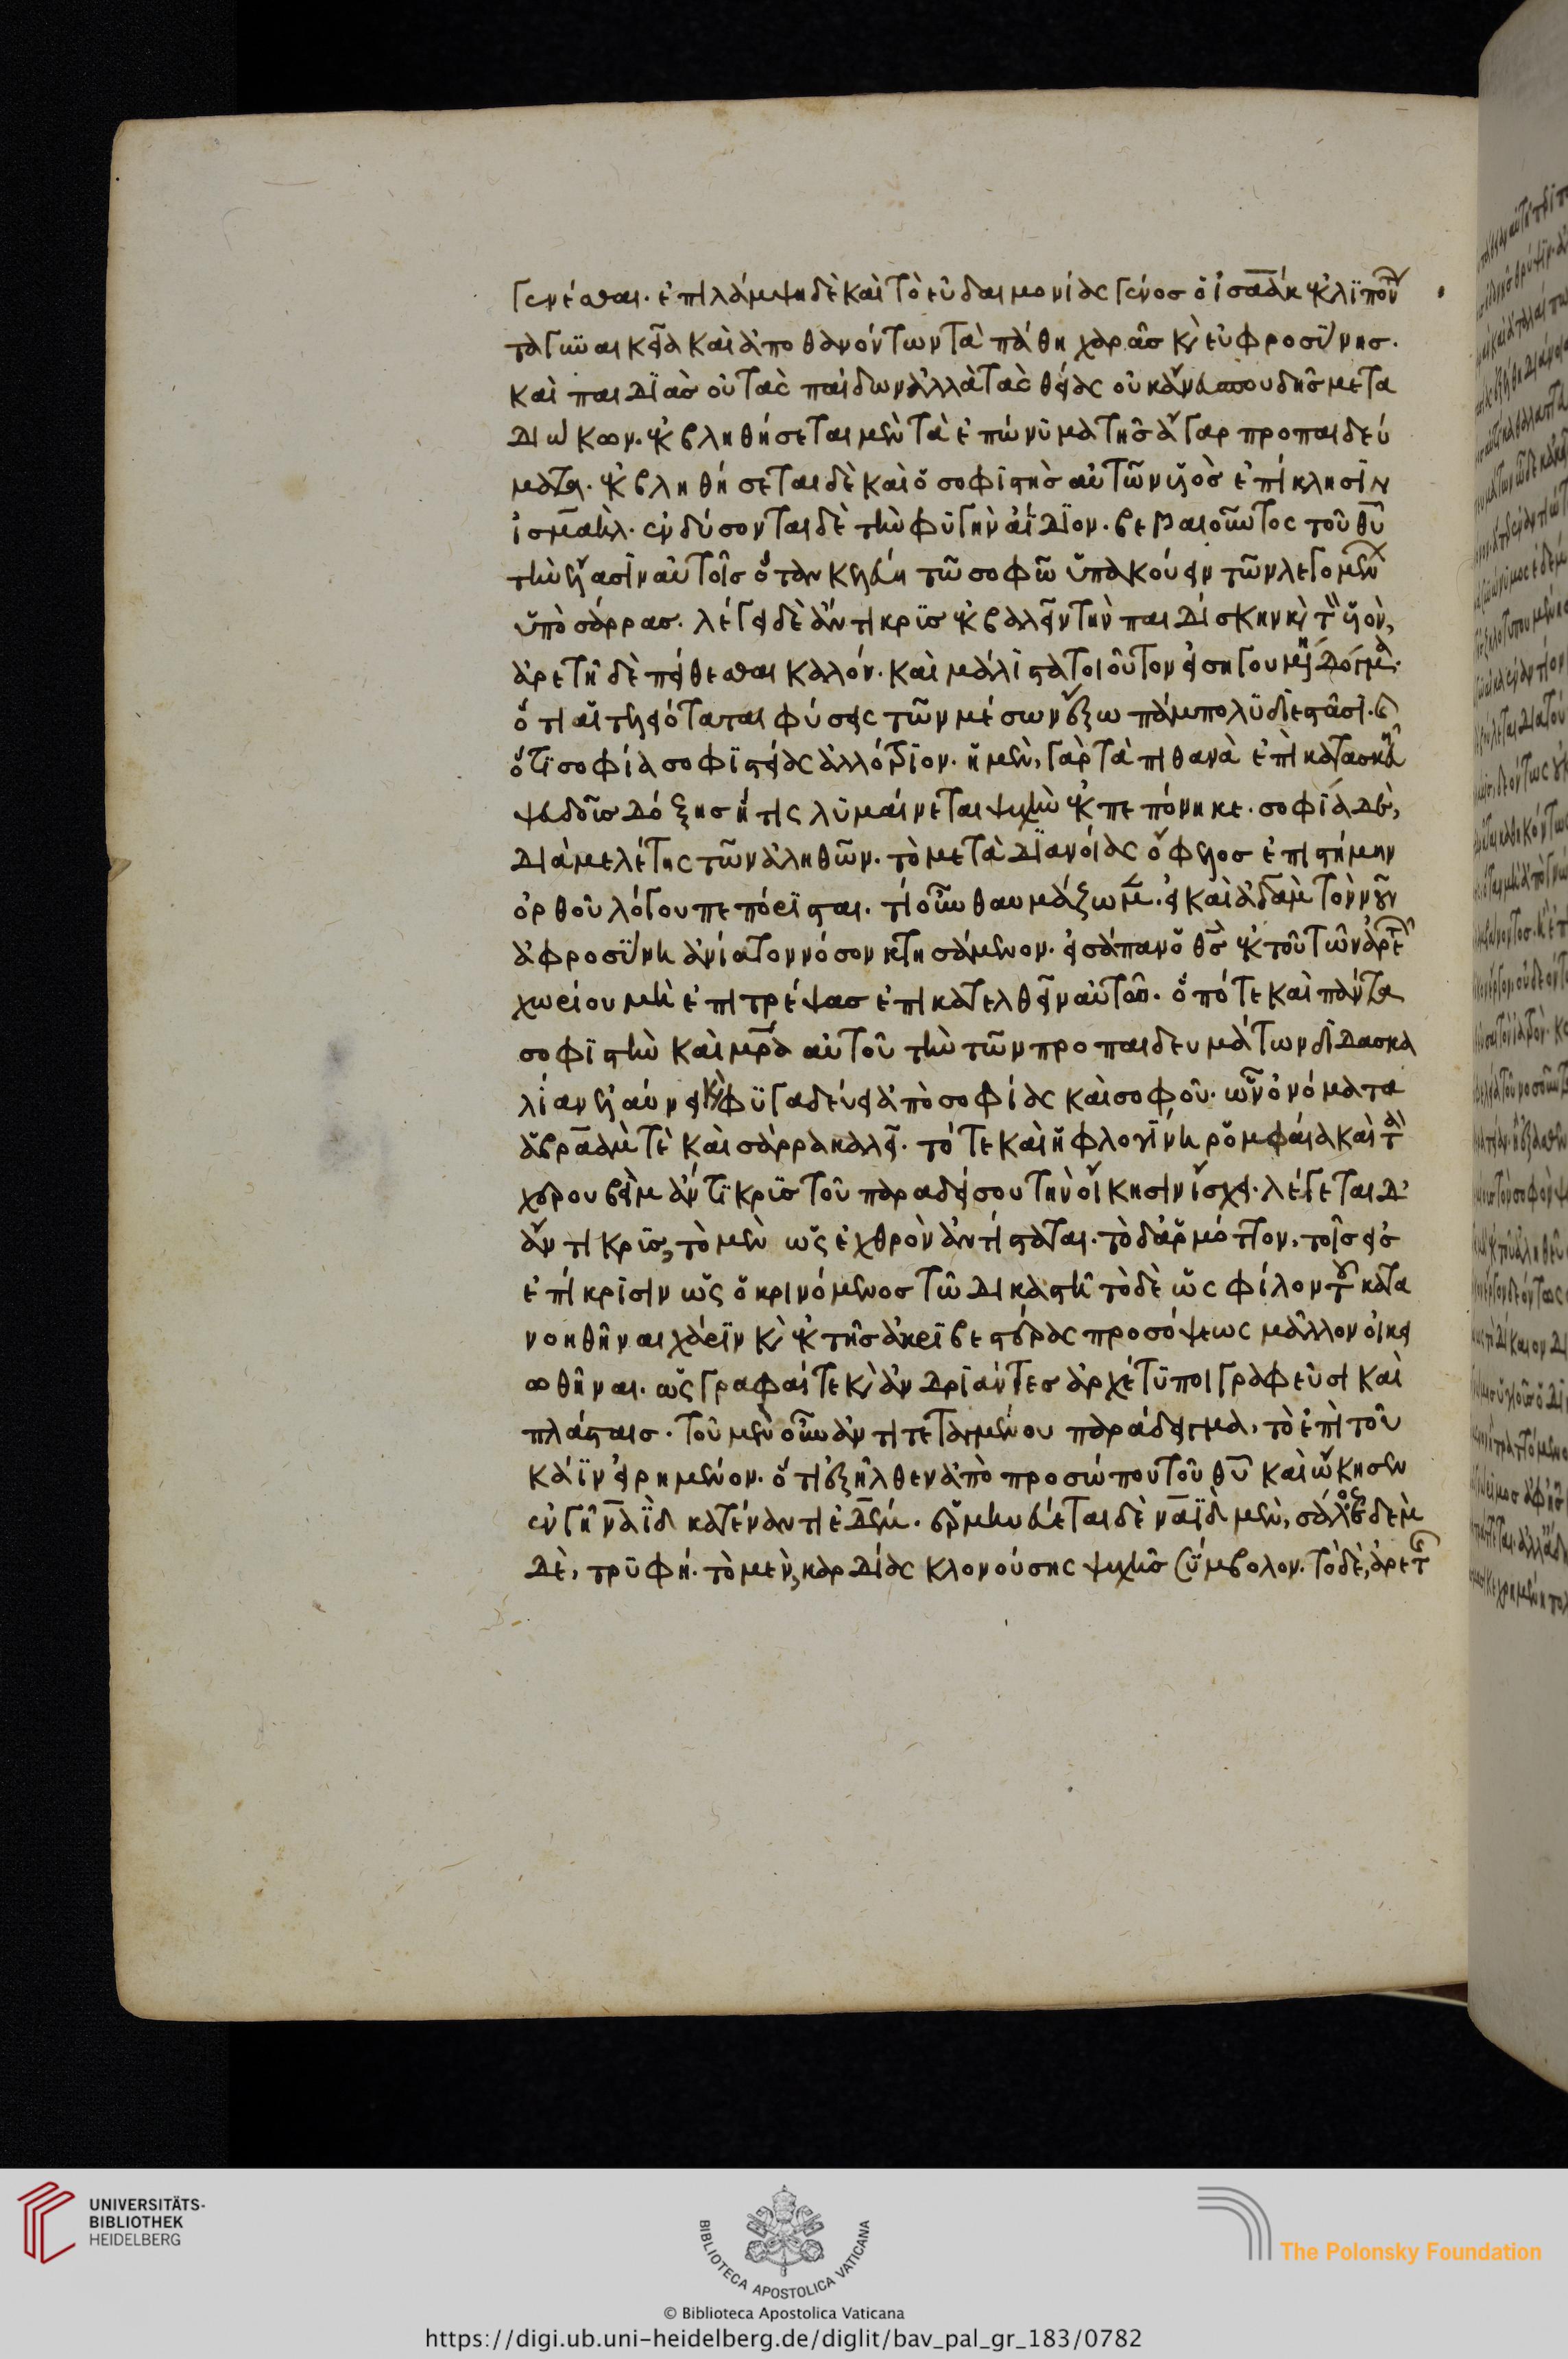 γενέσθαι. ἐπιλάμψη δὲ καὶ τὸ εὐδαιμονίας γένος ὁ ἰσαάκ ἐκλϊπὸν
τὰ γυναικεῖα καὶ ἀποθανόντων τὰ πάθη χαρᾶσ κ̀ εὐφροσϋνησ.
καὶ παιδϊὰσ οὐ τὰς παίδων ἀλλὰ τὰς θείας οὐκ ἄνευ σπουδῆσ μετα
διώκων. ἐκβληθήσεται μὲν τὰ ἐπώνϋμα τῆσ ἄγαρ προπαιδεύ
ματα. ἐκβληθήσεται δὲ καὶ ὁ σοφϊστὴσ αὐτῶν υἱὸσ ἐπίκλησϊν
ἰσμαήλ. ἐνδύσονται δὲ τὴν φϋγὴν ἀΐδϊον. βεβαιοῦντος τοῦ θῦ
τὴν ἔλασϊν αὐτοῖσ ὅταν κελεύη τῶ σοφῶ ὑπακούειν τῶν λεγομένων
ὑπὸ σάρρασ. λέγει δὲ ἄντικρϋσ ἐκβαλεῖν τὴν παιδίσκην κ̀ τὸν υἱόν,
ἀρετῆ δὲ πείθεσθαι καλόν. καὶ μάλϊστα τοιοῦτον εἰσηγουμένη δόγμα.
ὅτι αἱ τελειόταται φύσεις τῶν μέσων ἕξεων πάμπολϋ διεστᾶσι. κ̀
ὅτϊ σοφία σοφϊστείας ἀλλότρϊον. ἡ μὲν, γὰρ τὰ πιθανὰ ἐπὶ κατασκευῆ
ψευδοῦσ δόξησ ἥτις λϋμαίνεται ψυχὴν ἐκπεπόνηκε. σοφία δὲ,
διὰ μελέτης τῶν ἀληθῶν. τὸ μετὰ διανοίας ὄφελοσ ἐπιστήμην
ὀρθοῦ λόγου πεπόρϊσται. τί οὖν θαυμάζωμεν. εἰ καὶ ἀδὰμ τὸν νοῦν
ἀφροσϋνη ἀνίατον νόσον κτησάμενον. εἰσάπαν ὁ θσ ἐκ τοῦ τῶν ἀρετῶν
χωρίου μὴ ἐπιτρέψασ ἐπικατελθεῖν αὐτῶ. ὁπότε καὶ πάντα
σοφϊστὴν καὶ μρα αὐτοῦ τὴν τῶν προπαιδευμάτων διδασκα
λίαν ἐλαύνει κ̀ φϋγαδεύει ἀπὸ σοφίας καὶ σοφοῦ. ὧν ὀνόματα
ἀβραάμ τὲ καὶ σάρρα καλεῖ. τότε καὶ ἡ φλογϊνη ρομφαία καὶ τὰ
χερουβὶμ ἀντϊκρϋσ τοῦ παραδείσου τὴν οἴκησιν ἴσχει. λέγεται δ'
ἄντικρϋσ, τὸ μὲν ὡς ἐχθρὸν ἀντίσταται. τὸ δ' ἁρμόττον. τοῖσ εἰσ
ἐπίκρϊσιν ὡς ὁ κρινόμενοσ τῶ δικαστῆ τὸ δὲ ὡς φίλον τοῦ κατα
νοηθῆναι χάρϊν κ̀ ἐκ τῆσ ἀκρϊβεστέρας προσόψεως μᾶλλον οἰκει
ωθῆναι. ὡς γραφαί τε κ̀ ἀνδρϊάντεσ ἀρχέτϋποι γραφεῦσι καὶ
πλάσταισ. τοῦ μὲν οὖν ἀντιτεταγμένου παράδειγμα, τὸ ἐπὶ τοῦ
κάϊν εἰρημένον. ὅτι ἐξῆλθεν ἀπὸ προσώπου τοῦ θῦ καὶ ὤκησεν
ἐν γῆ ναῒδ κατέναντι ἐδέμ. ἑρμηνεύεται δὲ ναῒδ μὲν, σάλος ἐδὲμ
δὲ, τρϋφή. τὸ μὲν, καρδίας κλονούσης ψυχῆσ σϋμβολον. τὸ δὲ, ἀρετῆσ
UNIVERSITÄTS-
BIBLIOTHEK
HEIDELBERG
BIBLIOTECA APOSTOLICA VATICANA
The Polonsky Foundation
© Biblioteca Apostolica Vaticana
https://digi.ub.uni-heidelberg.de/diglit/bav_pal_gr_183/0782